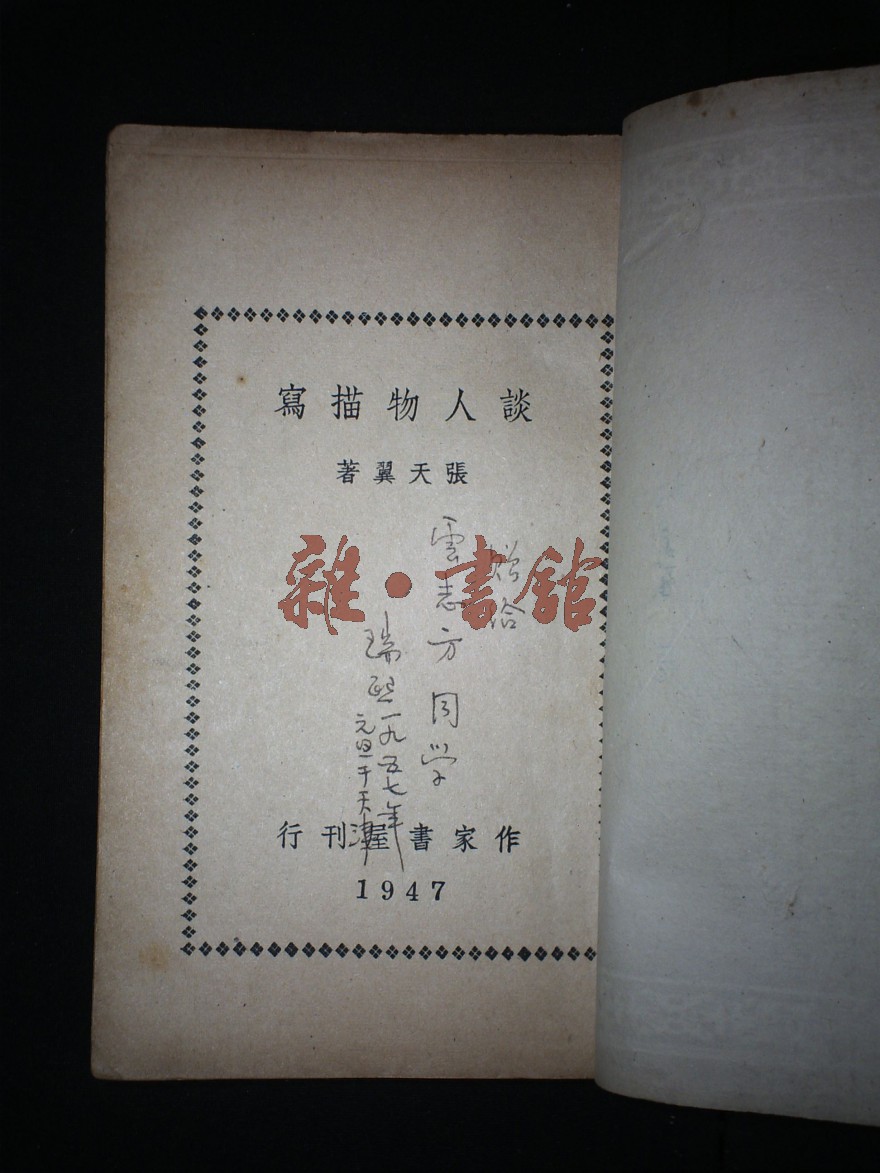 談人物描寫
張天翼著
赠给
雲志方同学
瑞熙一九五七年
元旦于天津
雜·書館
作家書屋刊行
1947